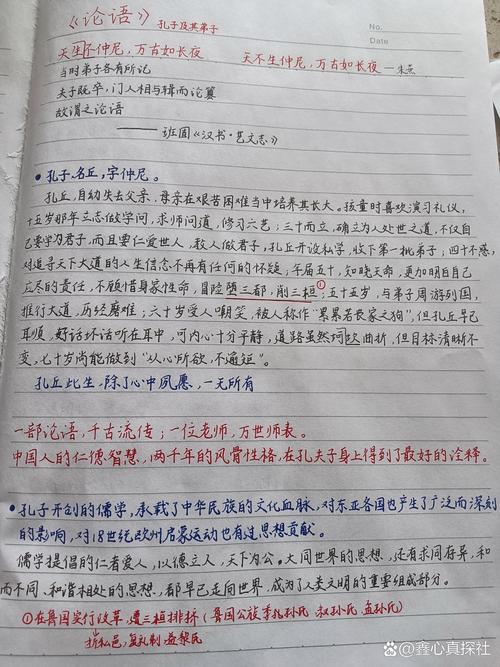 《论语》 孔子及其弟子
No.
Date
天生不仲尼，万古如长夜 天不生仲尼，万古如长夜 —朱熹
当时弟子各有所记
夫子既卒，门人相与辑而论篹
故谓之论语
——班固《汉书·艺文志》
• 孔子，名丘，字仲尼。
孔丘，自幼失去父亲，母亲在艰苦困难当中培养其长大。孩童时喜欢演习礼仪，
十五岁那年立志做学问，求师问道，修习六艺；三十而立，确立为人处世之道，不仅自
己要学为君子，而且要仁爱世人，教人做君子，孔丘开设私学，收下第一批弟子；四十不惑，
对追寻天下大道的人生信念不再有任何的怀疑；年届五十，知晓天命，更加明白自己
应尽的责任，不顾惜身家性命，冒险堕三都，削三桓①；五十五岁，与弟子周游列国，
推行大道，历经磨难；六十岁受人嘲笑，被人称作“累累若丧家之狗”，但孔丘早已
耳顺，好话坏话听在耳中，可内心十分平静，道路虽然坷坎曲折，但目标清晰不
变，七十岁尚能做到“从心所欲，不逾矩”。
孔丘此生，除了心中夙愿，一无所有
一部论语，千古流传；一位老师，万世师表。
中国人的仁德智慧，两千年的风骨性格，在孔夫子身上得到了最好的诠释。
• 孔子开创的儒学，承载了中华民族的文化血脉，对东亚各国也产生了广泛而深刻
的影响，对18世纪欧州启蒙运动也有过思想贡献。
儒学提倡的仁者爱人，以德立人，天下为公。大同世界的思想，还有求同存异，和
而不同、和谐相处的思想，都早已走向世界，成为了人类文明的重要组成部分。
①在鲁国实行改革，遭三桓排挤（鲁国公族季孔孙氏 叔孙氏 孟孙氏）
拆私邑，复礼制，益黎民
@鑫心真探社